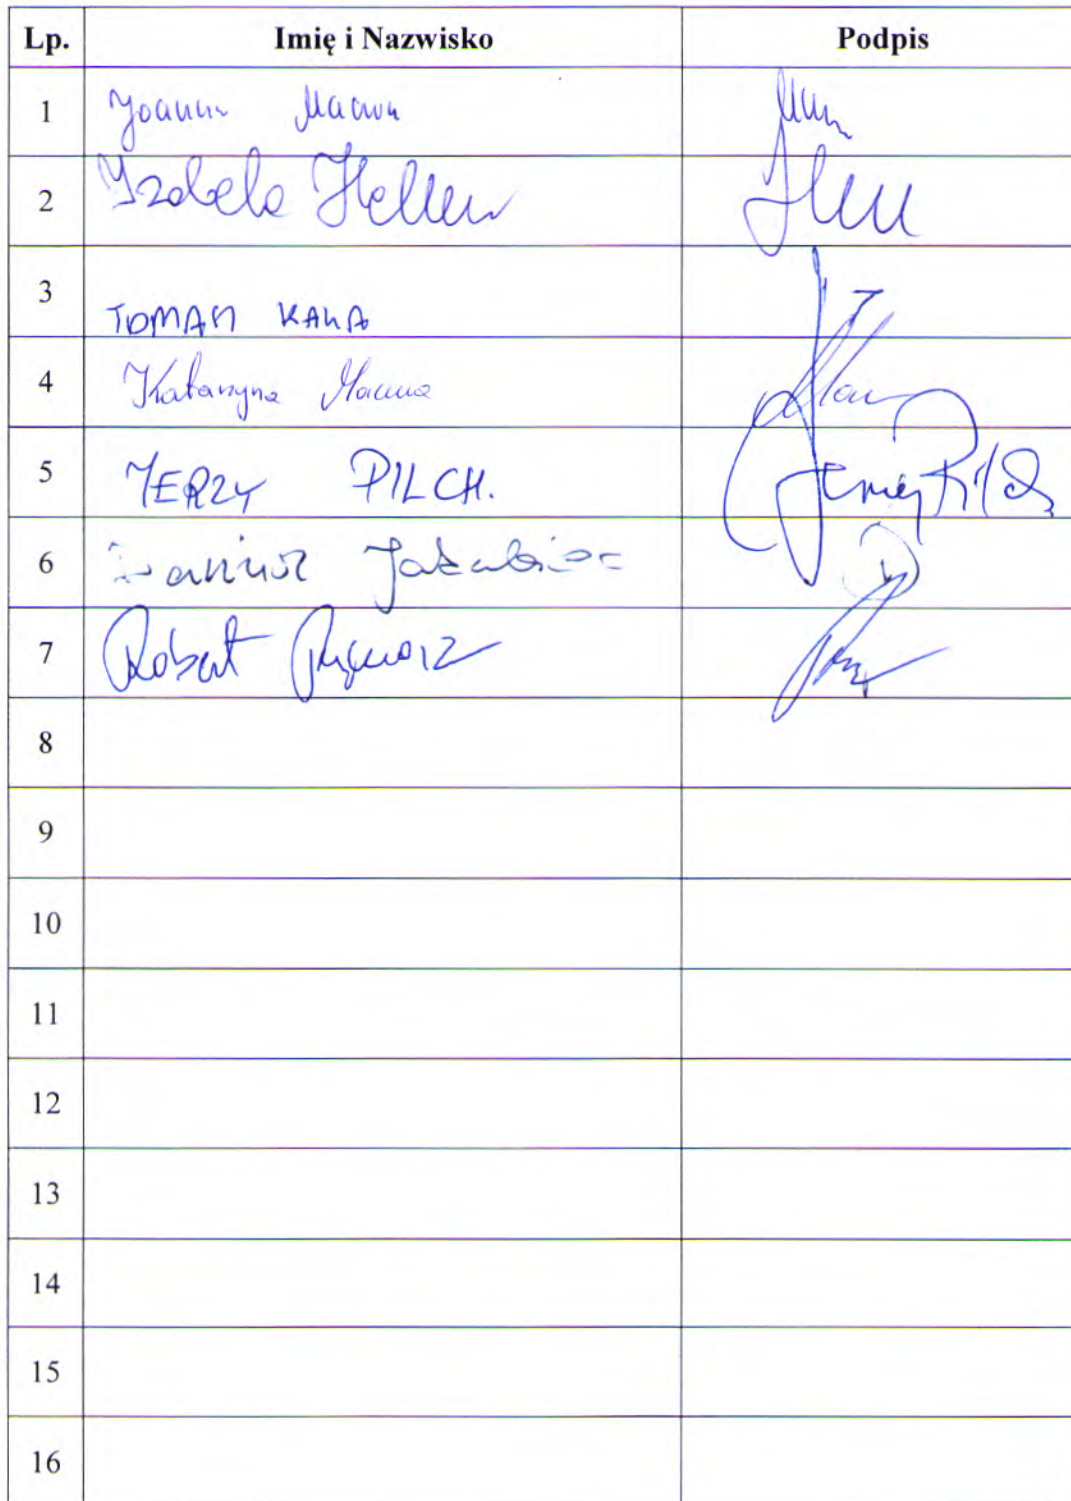 Lp. Imię i Nazwisko Podpis
1 Joanna
2 Izabela Heller
3 TOMASZ KAŁA
4 Katarzyna
5 JERZY PILCH. Jerzy Pilch
6 Dariusz Jakubiec
7 Robert
8
9
10
11
12
13
14
15
16